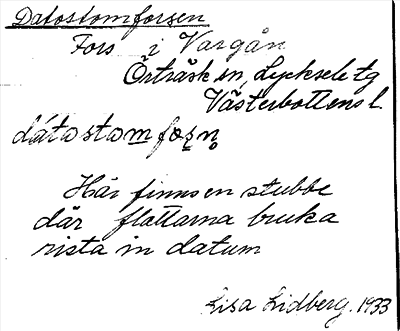 Datostomforsen
Fors i Vargån
Örträsk sn, Lycksele tg
Västerbottens l.
dátostomfoṣṇ
Här finns en stubbe
där flottarna bruka
rista in datum
Lisa Lidberg. 1933